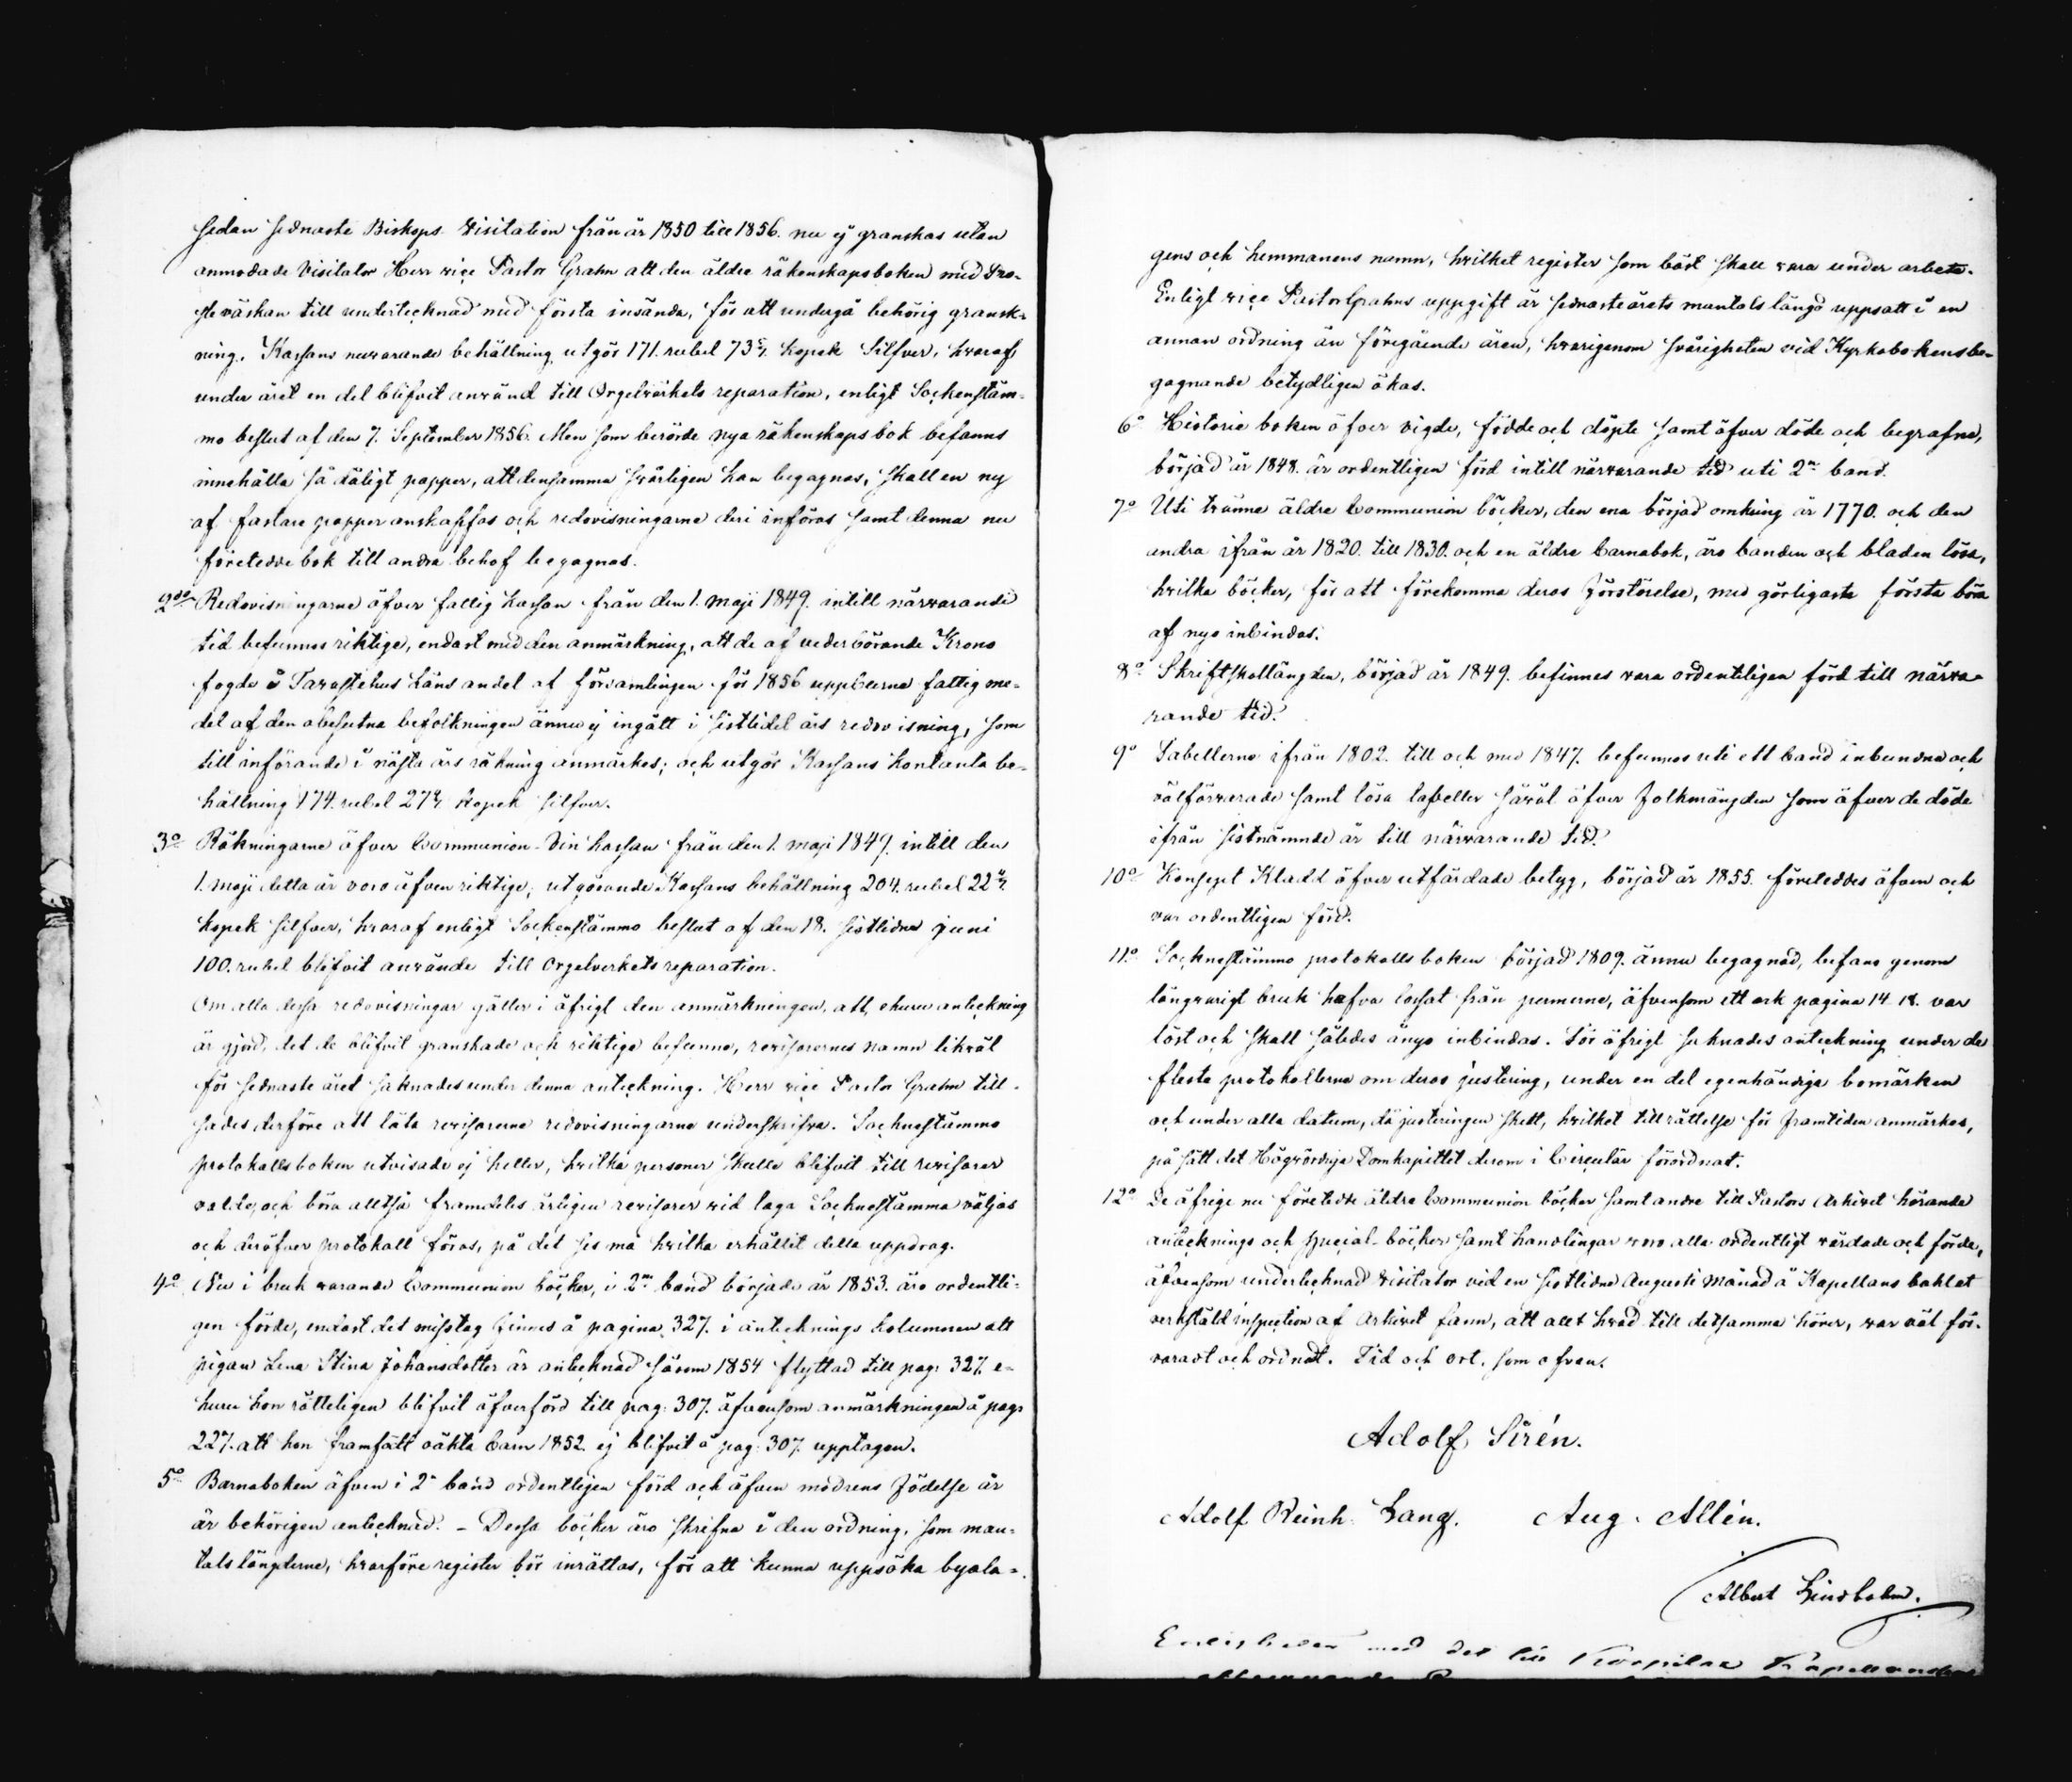 sedan sednaste Biskops visitation från år 1850 till 1856. nu ej granskas utan
anmodade Visitator Herr vice Pastor Grahn att den äldre räkenskapsboken med Pro-
steväskan till undertecknad med första insända, för att undergå behörig gransk-
ning. Kassans nuvarande behållning utgör 171. rubel 73 5/7. kopek Silfver, hvaraf
under året en del blifvit använd till Orgelvärkets reparation, enligt Sockenstäm-
mo beslut af den 7. September 1856. Men som berörde nya räkenskaps bok befanns
innehålla så dåligt papper, att densamma svårligen kan begagnas, skall en ny
af fastare papper anskaffas och redovisningarne deri införas samt denna nu
företedde bok till andra behof begagnas.
2do Redovisningarne öfver fattig kassan från den 1. Maji 1849. intill närvarande
tid befunnos riktige, endast med den anmärkning, att de af vederbörande Krono
fogde i Tavastehus Läns andel af församlingen för 1856 uppburne fattig me-
del af den obesutna befolkningen ännu ej ingått i sistlidet års redovisning, som
till införande i nästa års räkning anmärkes; och utgör Kassans kontanta be-
hållning 174. rubel 27 kopek silfver.
3o Räkningarne öfver Communion-Vin kassan från den 1. maji 1849. intill den
1. maji detta år voro äfven riktige, utgörande Kassans behållning 204. rubel 22
kopek silfver, hvaraf enligt Sockenstämmo beslut af den 18. sistlidne juni
100. rubel blifvit använde till Orgelverkets reparation.
Om alla dessa redovisningar gäller i öfrigt den anmärkningen, att, ehuru anteckning
är gjord, det de blifvit granskade och riktige befunne, revisorernes namn likväl
för sednaste året saknades under denna anteckning. Herr vice Pastor Grahn till-
sades derföre att låta revisorerne redovisningarne underskrifva. Sockenstämmo
protokollsboken utvisade ej heller, hvilka personer skulle blifvit till revisorer
valde, och böra alltså framdeles årligen revisorer vid laga Sockenstämma väljas
och deröfver protokoll föras, på det ses må hvilka erhållit detta uppdrag.
4o Nu i bruk varande Communion böcker, i 2ne band började år 1853. äro ordentli-
gen förde, endast det misstag finnes å pagina 327. i antecknings kolumnen att
pigan Lena Stina Johansdotter är antecknad såsom 1854 flyttad till pag: 327. e-
huru hon rätteligen blifvit öfverförd till pag: 307. äfvensom anmärkningen å pag:
227. att hon framfödt oäkta barn 1852. ej blifvit å pag: 307. upptagen.
5o Barnaboken äfven i 2ne band ordentligen förd och äfven modrens födelse år
är behörigen antecknad. – Dessa böcker äro skrifna i den ordning, som man-
tals längderne, hvarföre register bör inrättas, för att kunna uppsöka byala-
gens och hemmanens namn, hvilket register som bäst skall vara under arbete.
Enligt vice Pastor Grahns uppgift är sednaste årets mantals längd uppsatt i en
annan ordning än föregående åren, hvarigenom svårigheten vid Kyrkobokens be-
gagnande betydligen ökas.
6o Historie boken öfver vigde, födde och döpte samt öfver döde och begrafne,
börjad år 1848. är ordentligen förd intill närvarande tid uti 2ne band.
7o Uti tvänne äldre Communion böcker, den ena börjad omkring år 1770. och den
andra ifrån år 1820. till 1830. och en äldre barnabok, äro banden och bladen lösa,
hvilka böcker, för att förekomma deras förstörelse, med görligaste första böra
af nyo inbindas.
8o Skriftskollängden, börjad år 1849. befinnes vara ordenteligen förd till närva-
rande tid.
9o Tabellerne ifrån 1802. till och med 1847. befunnos uti ett band inbundne och
välförvarade samt lösa tabeller såväl öfver folkmängden som öfver de döde
ifrån sistnämnde år till närvarande tid.
10o Konsept Kladd öfver utfärdade betyg, börjad år 1855. företeddes äfven och
var ordentligen förd.
11o Sockenstämmo protokolls boken börjad 1809. ännu begagnad, befans genom
långvarigt bruk hafva lossat från permerne, äfvensom ett ark pagina 14. 18. var
löst och skall således ånyo inbindas. För öfrigt saknades anteckning under de
flesta protokollerne om deras justering, under en del egenhändiga bomärken
och under alla datum, då justeringen skett, hvilket till rättelse för framtiden anmärkes,
på sätt det Högvördiga Domkapitlet derom i Circulär förordnat.
12o De öfrige nu företedde äldre Communion böcker samt andre till Pastors Arkivet hörande
antecknings och special-böcker samt handlingar voro alla ordentligt vårdade och förde,
äfvensom undertecknad visitator vid en sistlidne Augusti Månad å Kapellans bohlet
verkställd inspection af Arkivet fann, att allt hvad till detsamma hörer, var väl för-
varadt och ordnadt. Tid och ort, som ofvan.
Adolf Sirén.
Adolf Reinh. Lang. Aug. Allén.
Albert Lindholm.
med det till Korpilax Kapell